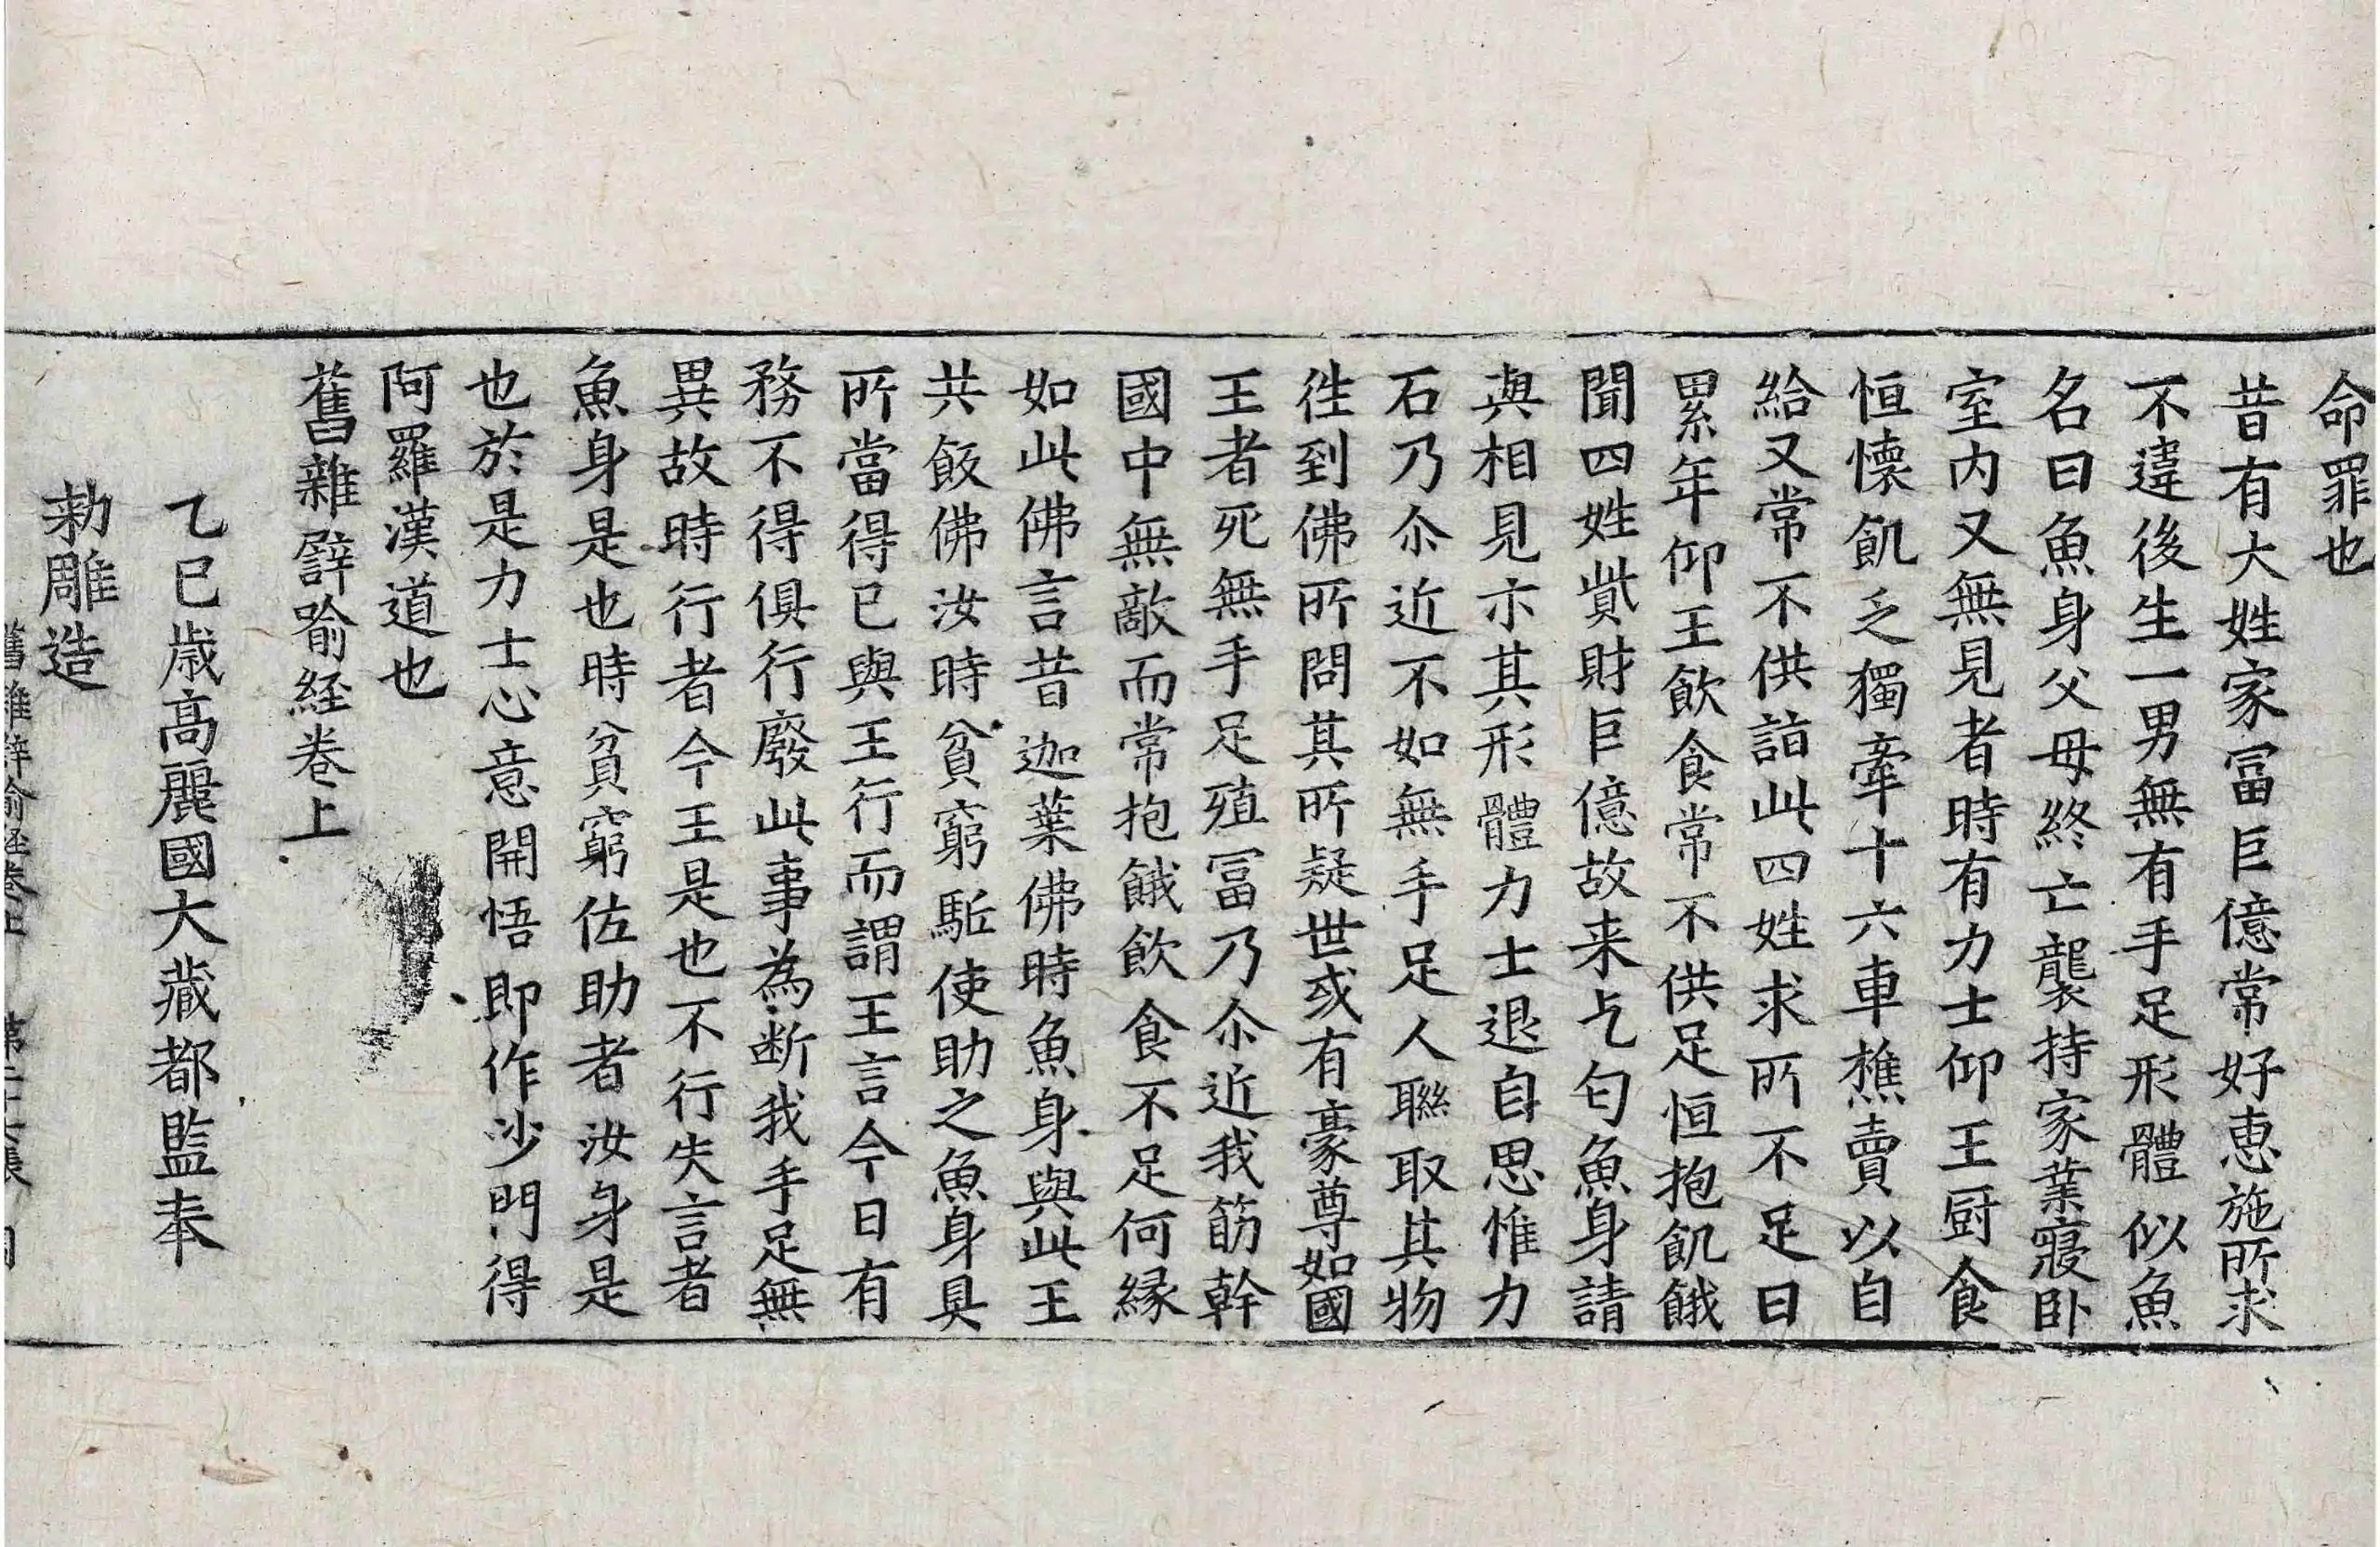 命罪也
昔有大姓家冨巨億常好恵施所求
不違後生一男無有手足形體似魚
名曰魚身父母終亡襲持家業寢卧
室内又無見者時有力士仰王厨食
恒懷飢乏獨牽十六車樵賣以自
給又常不供詣此四姓求所不足曰
累年仰王飲食常不供足恒抱飢餓
聞四姓貲財巨億故来乞匄魚身請
與相見示其形體力士退自思惟力
石乃尒近不如無手足人聮取其物
徃到佛所問其所疑世或有豪尊如國
王者死無手足殖冨乃尒近我筋幹
國中無敵而常抱餓飲食不足何縁
如此佛言昔迦葉佛時魚身與此王
共飯佛汝時貧窮駈使助之魚身具
所當得已與王行而謂王言今日有
務不得俱行廢此事為断我手足無
異故時行者今王是也不行失言者
魚身是也時貧窮佐助者汝身是
也於是力士心意開悟即作沙門得
阿羅漢道也
舊雜譬喻経卷上
乙巳歳髙麗國大藏都監奉
勅雕造
舊雜譬喻経卷上 第二十六張